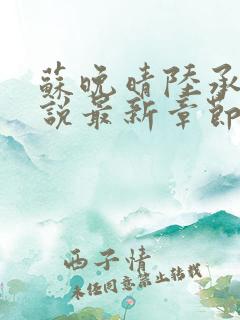 蘇晚晴陸承
說最新章節
西子情
未经同意禁止转载